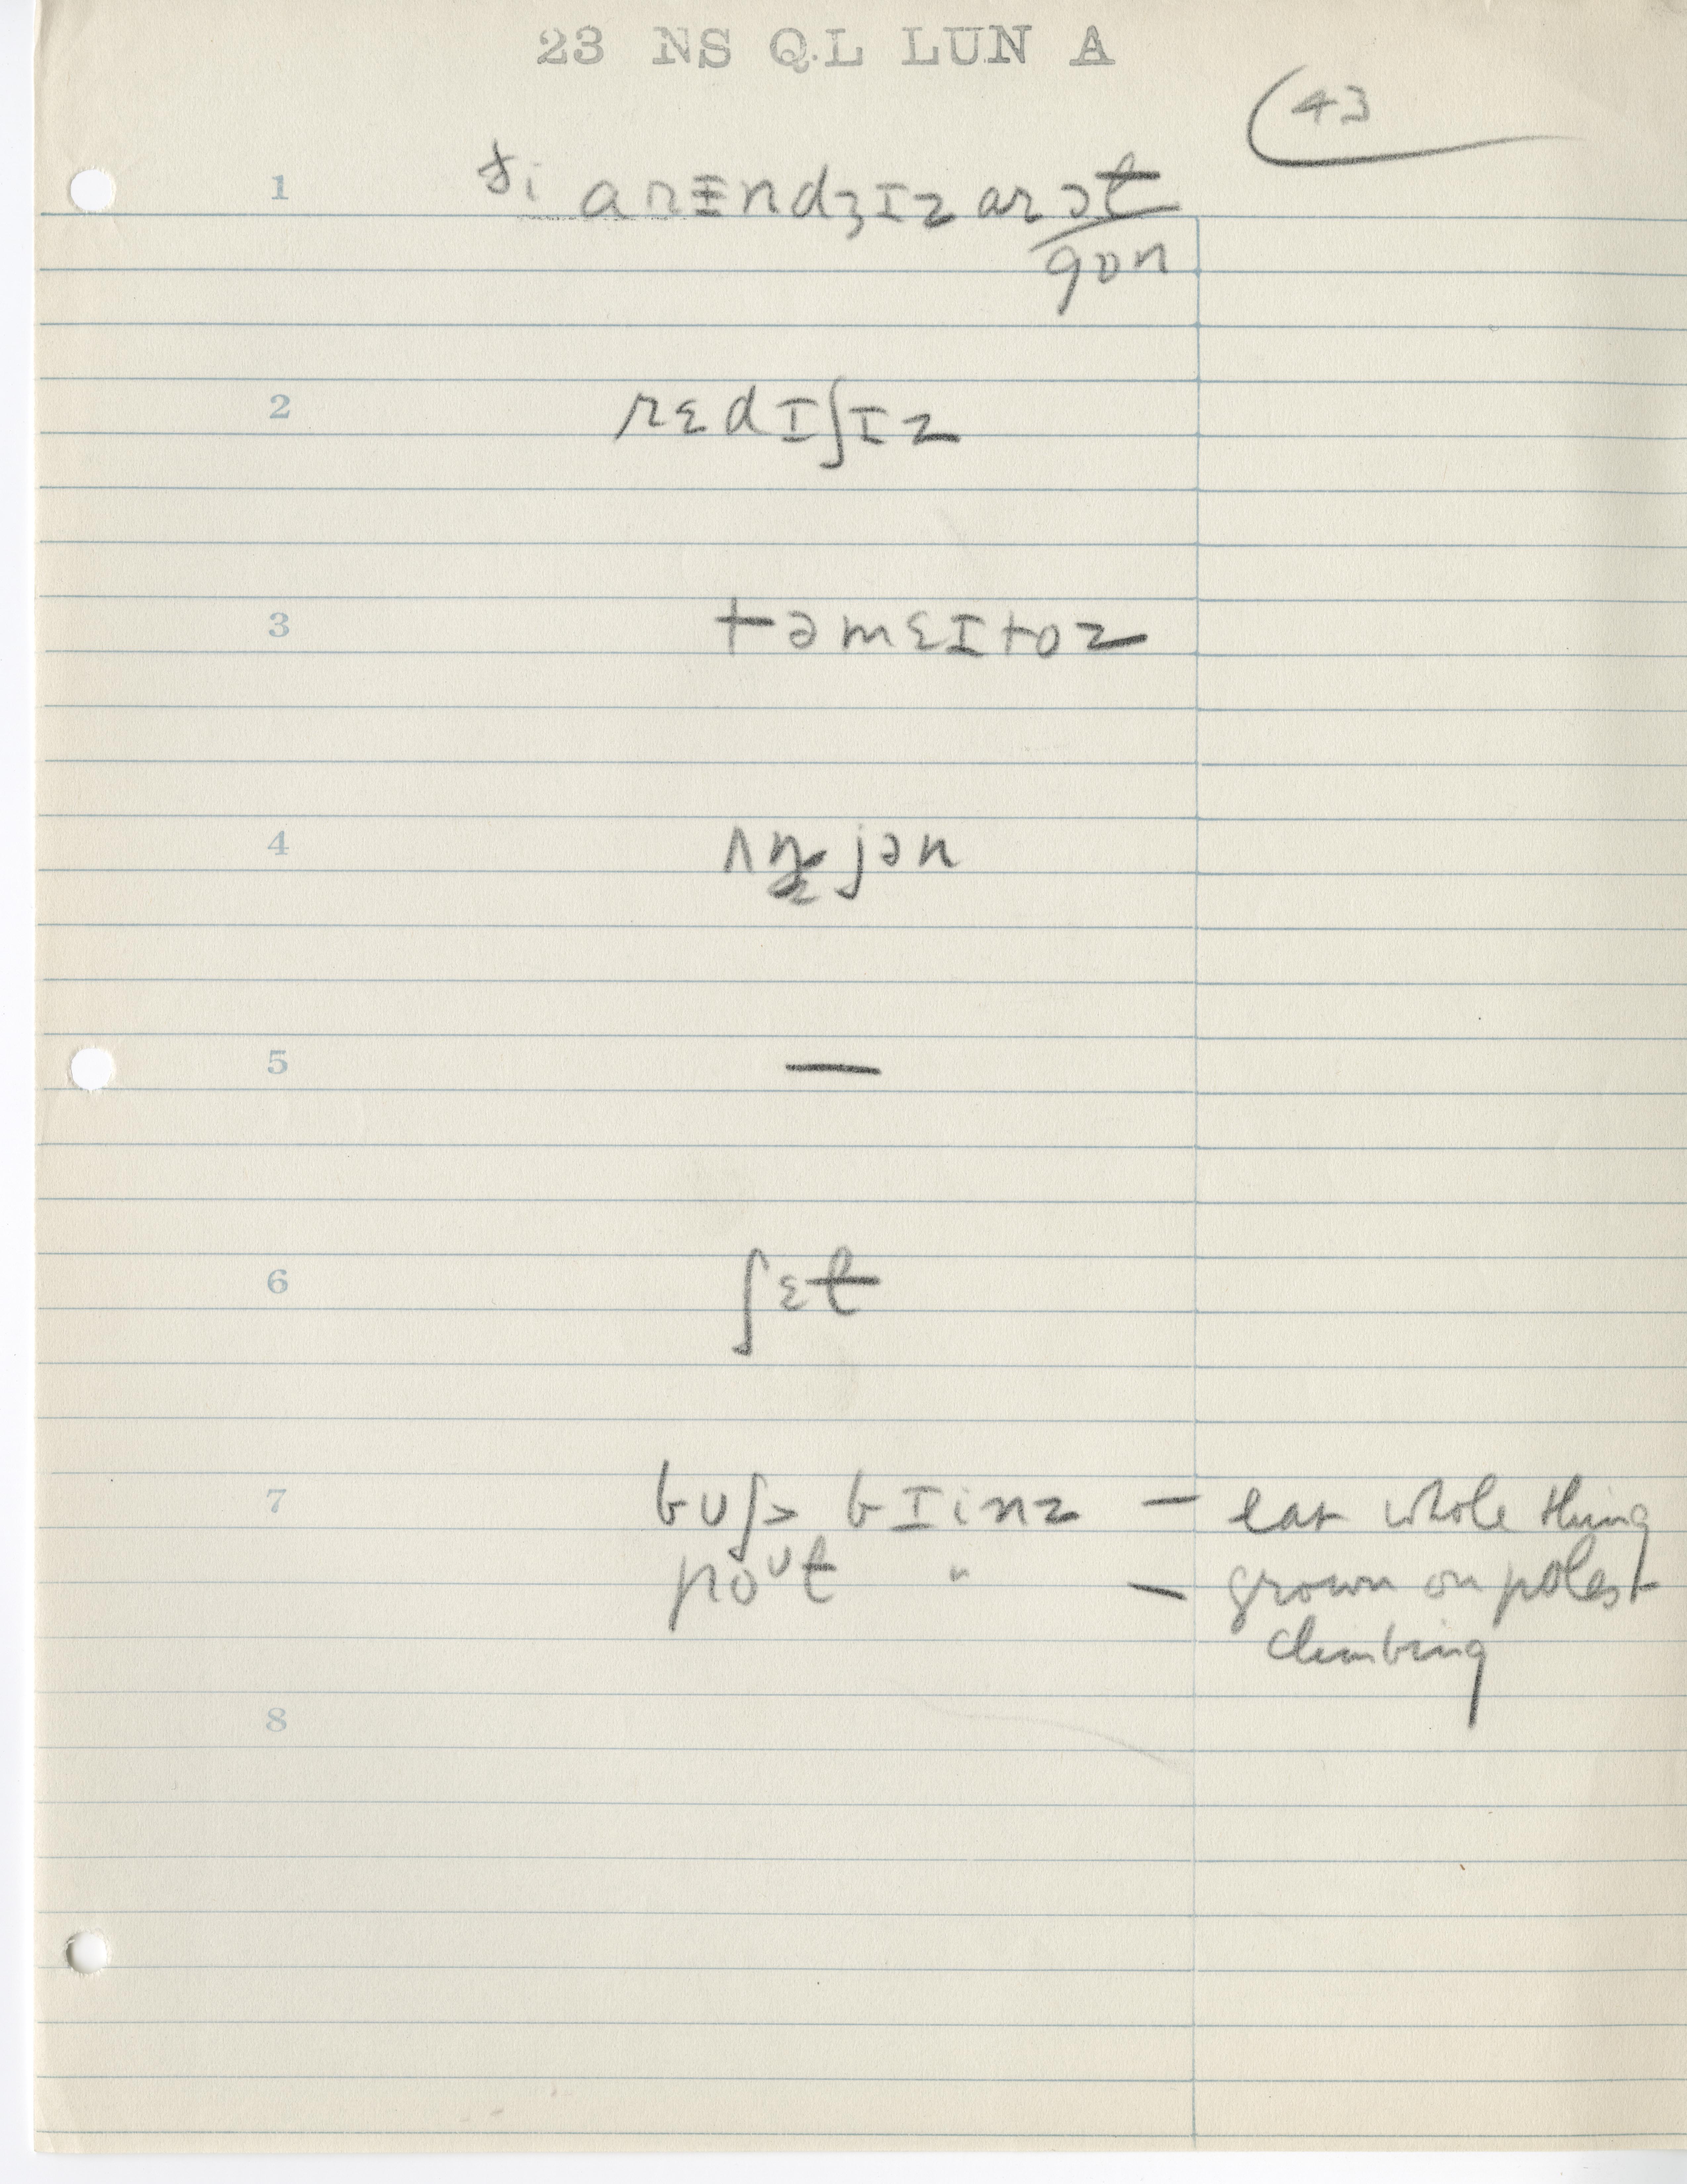 23 NS QL LUN A
43
1 ði arᵻndʒɪz ar ɔɫ
gɒn
2 rɛdɪʃɪz
3 təmɛɪtoz
4 jən
5 —
6 ʃɛɫ
7 bʊʃ> bɪinz — eat whole thing
poᶷɫ " — grown on poles +
climbing
8